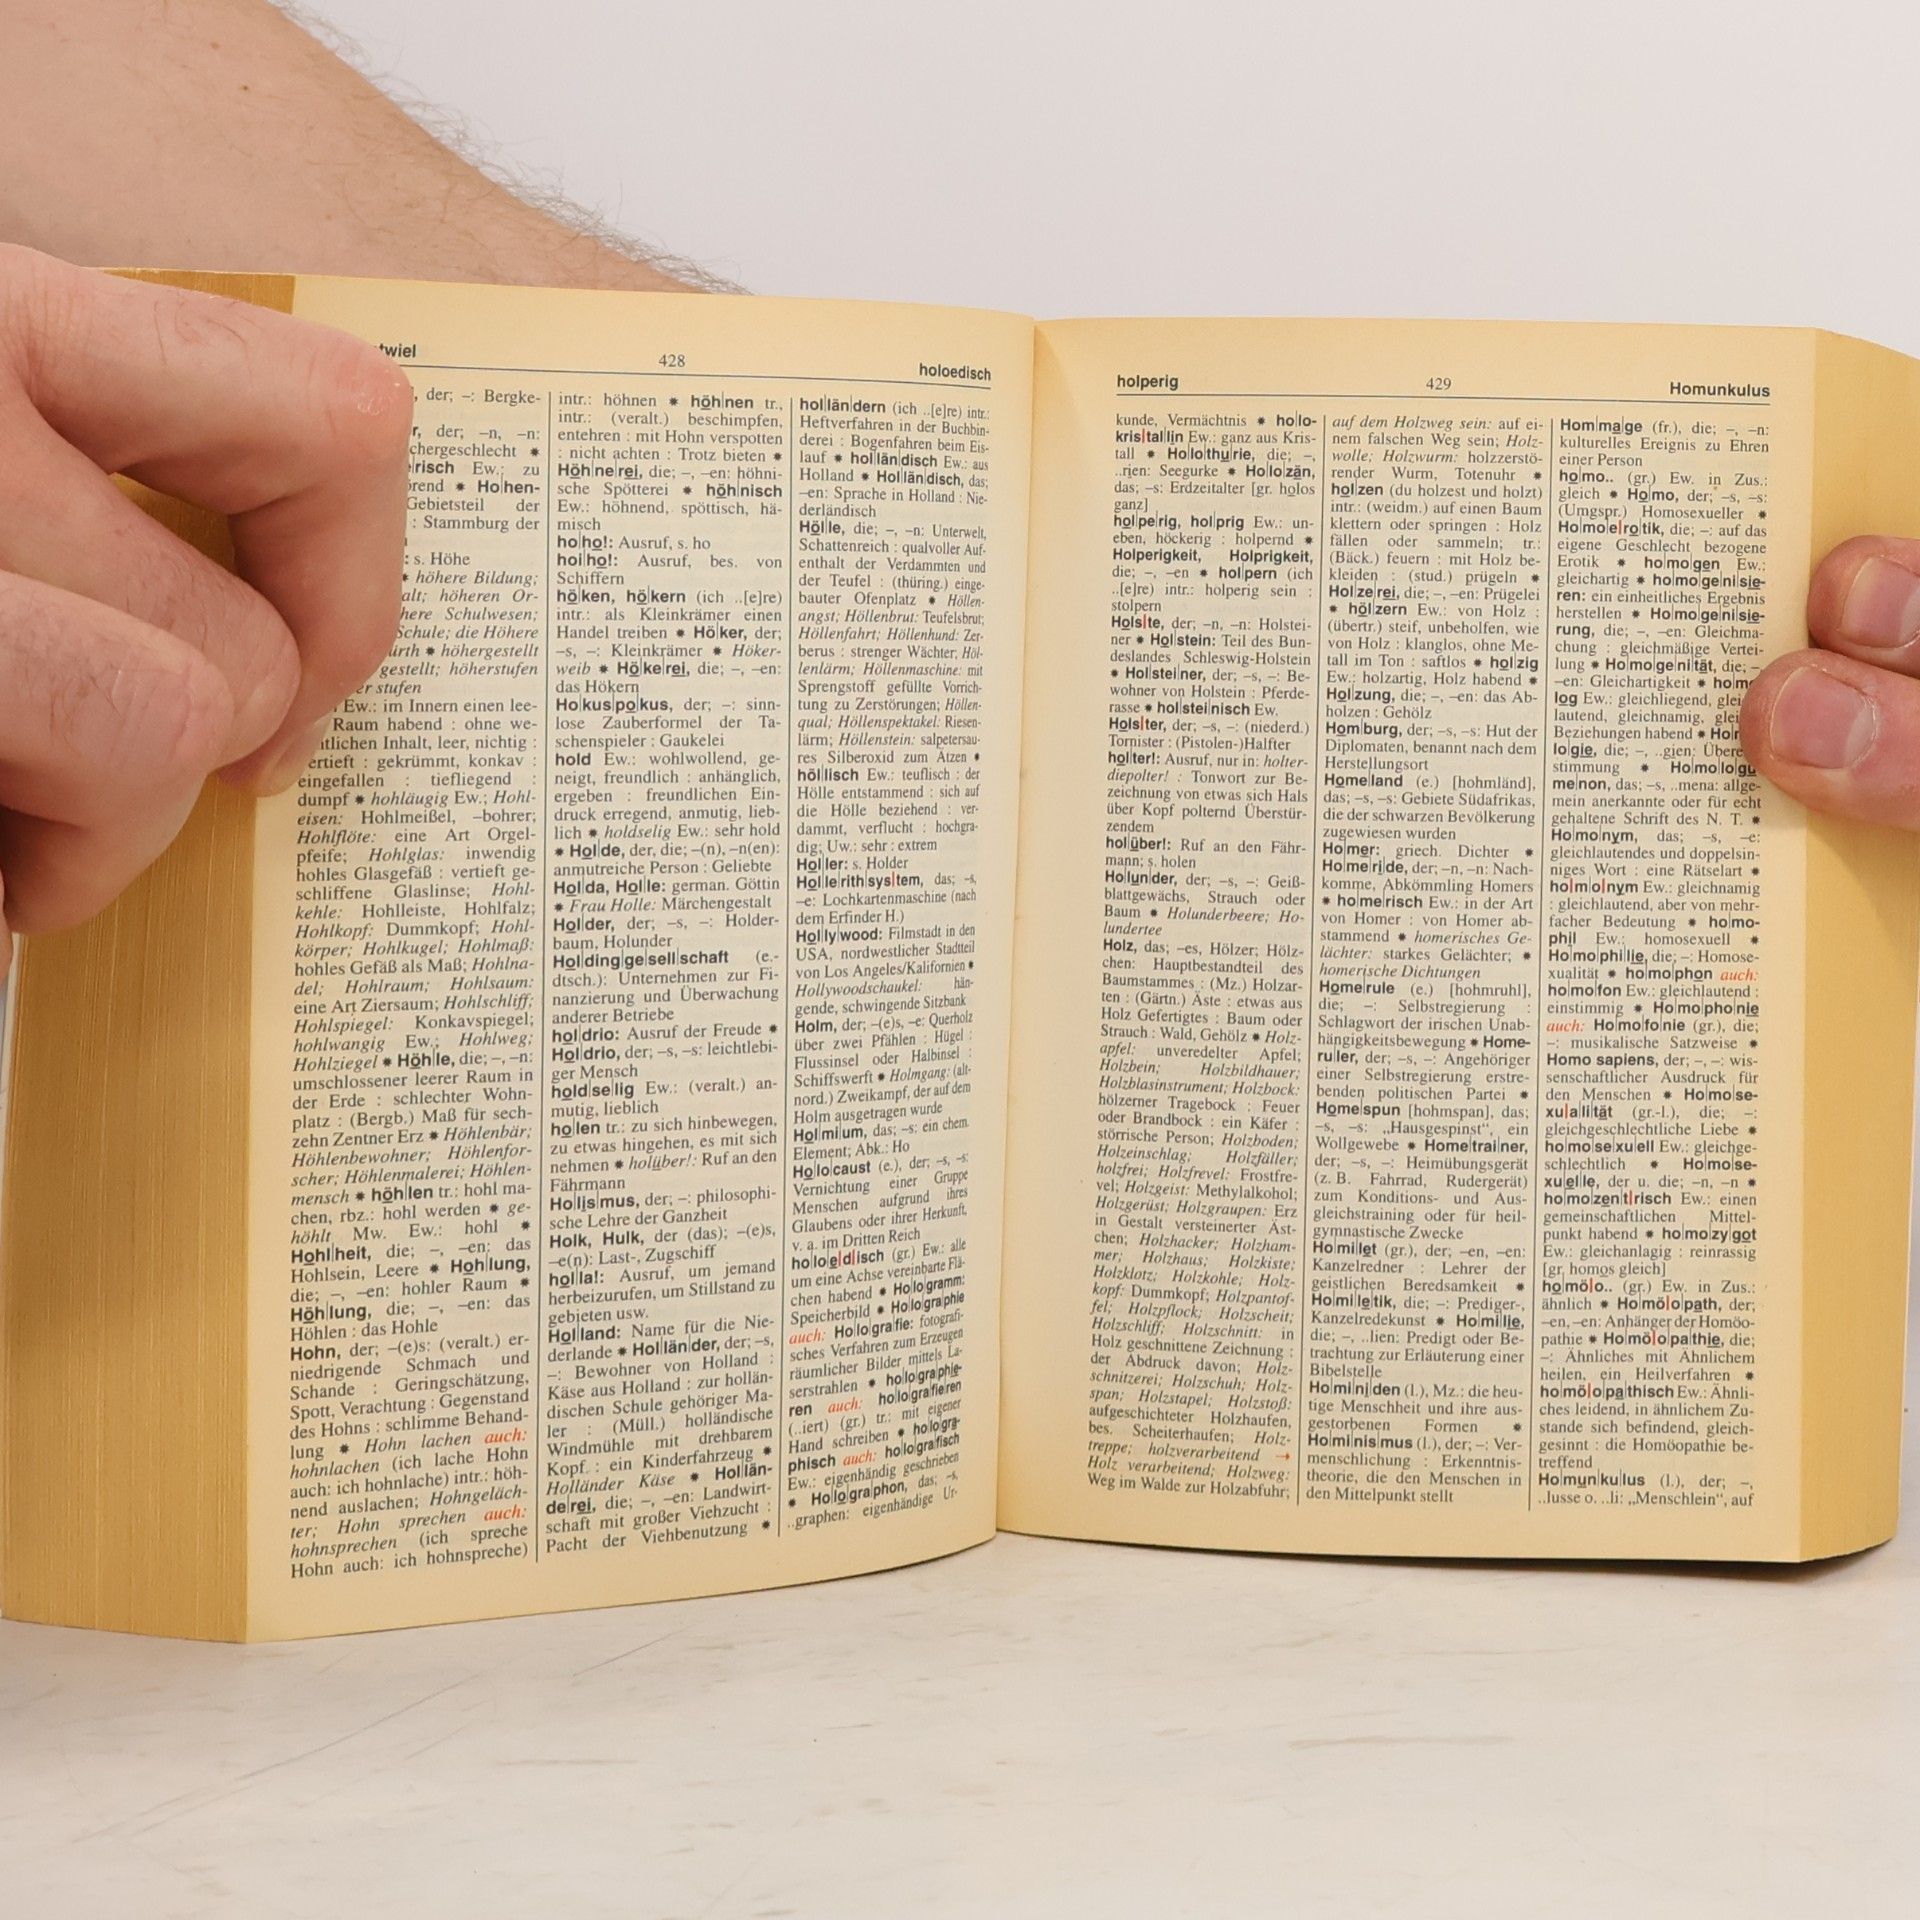 twiel
428
holoedisch
der; –: Bergke-
der; –n, –n:
chergeschlecht *
risch Ew.; zu
rend * Ho|hen-
Gebietsteil der
: Stammburg der
: s. Höhe
* höhere Bildung;
alt; höheren Or-
here Schulwesen;
Schule; die Höhere
ürth * höhergestellt
gestellt; höherstufen
er stufen
Ew.: im Innern einen lee-
Raum habend : ohne we-
tlichen Inhalt, leer, nichtig :
ertieft : gekrümmt, konkav :
eingefallen : tiefliegend :
dumpf * hohläugig Ew.; Hohl-
eisen: Hohlmeißel, –bohrer;
Hohlflöte: eine Art Orgel-
pfeife; Hohlglas: inwendig
hohles Glasgefäß : vertieft ge-
schliffene Glaslinse; Hohl-
kehle: Hohlleiste, Hohlfalz;
Hohlkopf: Dummkopf; Hohl-
körper; Hohlkugel; Hohlmaß:
hohles Gefäß als Maß; Hohlna-
del; Hohlraum; Hohlsaum:
eine Art Ziersaum; Hohlschliff;
Hohlspiegel: Konkavspiegel;
hohlwangig Ew.; Hohlweg;
Hohlziegel * Höh|le, die; –, –n:
umschlossener leerer Raum in
der Erde : schlechter Wohn-
platz : (Bergb.) Maß für sech-
zehn Zentner Erz * Höhlenbär;
Höhlenbewohner; Höhlenfor-
scher; Höhlenmalerei; Höhlen-
mensch * höh|len tr.: hohl ma-
chen, rbz.: hohl werden * ge-
höhlt Mw. Ew.: hohl *
Hohl|heit, die; –, –en: das
Hohlsein, Leere * Hoh|lung,
die; –, –en: hohler Raum *
Höh|lung, die; –, –en: das
Höhlen : das Hohle
Hohn, der; –(e)s: (veralt.) er-
niedrigende Schmach und
Schande : Geringschätzung,
Spott, Verachtung : Gegenstand
des Hohns : schlimme Behand-
lung * Hohn lachen auch:
hohnlachen (ich lache Hohn
auch: ich hohnlache) intr.: höh-
nend auslachen; Hohngeläch-
ter; Hohn sprechen auch:
hohnsprechen (ich spreche
Hohn auch: ich hohnspreche)
intr.: höhnen * höh|nen tr.,
intr.: (veralt.) beschimpfen,
entehren : mit Hohn verspotten
: nicht achten : Trotz bieten *
Höh|ne|rei, die; –, –en: höhni-
sche Spötterei * höh|nisch
Ew.: höhnend, spöttisch, hä-
misch
ho|ho!: Ausruf, s. ho
hoi|ho!: Ausruf, bes. von
Schiffern
hö|ken, hö|kern (ich ..[e]re)
intr.: als Kleinkrämer einen
Handel treiben * Hö|ker, der;
–s, –: Kleinkrämer * Höker-
weib * Hö|ke|rei, die; –, –en:
das Hökern
Ho|kus|po|kus, der; –: sinn-
lose Zauberformel der Ta-
schenspieler : Gaukelei
hold Ew.: wohlwollend, ge-
neigt, freundlich : anhänglich,
ergeben : freundlichen Ein-
druck erregend, anmutig, lieb-
lich * holdselig Ew.: sehr hold
* Hol|de, der, die; –(n), –n(en):
anmutreiche Person : Geliebte
Hol|da, Hol|le: german. Göttin
* Frau Holle: Märchengestalt
Hol|der, der; –s, –: Holder-
baum, Holunder
Hol|ding|ge|sell|schaft (e.-
dtsch.): Unternehmen zur Fi-
nanzierung und Überwachung
anderer Betriebe
hol|drio: Ausruf der Freude *
Hol|drio, der; –s, –s: leichtlebi-
ger Mensch
hold|se|lig Ew.: (veralt.) an-
mutig, lieblich
ho|len tr.: zu sich hinbewegen,
zu etwas hingehen, es mit sich
nehmen * holüber!: Ruf an den
Fährmann
Ho|lis|mus, der; –: philosophi-
sche Lehre der Ganzheit
Holk, Hulk, der (das); –(e)s,
–e(n): Last-, Zugschiff
hol|la!: Ausruf, um jemand
herbeizurufen, um Stillstand zu
gebieten usw.
Hol|land: Name für die Nie-
derlande * Hol|län|der, der; –s,
–: Bewohner von Holland :
Käse aus Holland : zur hollän-
dischen Schule gehöriger Ma-
ler : (Müll.) holländische
Windmühle mit drehbarem
Kopf : ein Kinderfahrzeug *
Holländer Käse * Hol|län-
de|rei, die; –, –en: Landwirt-
schaft mit großer Viehzucht :
Pacht der Viehbenutzung *
hol|län|dern (ich ..[e]re) intr.:
Heftverfahren in der Buchbin-
derei : Bogenfahren beim Eis-
lauf * hol|län|disch Ew.: aus
Holland * Hol|län|disch, das;
–en: Sprache in Holland : Nie-
derländisch
Höl|le, die; –, –n: Unterwelt,
Schattenreich : qualvoller Auf-
enthalt der Verdammten und
der Teufel : (thüring.) einge-
bauter Ofenplatz * Höllen-
angst; Höllenbrut: Teufelsbrut;
Höllenfahrt; Höllenhund: Zer-
berus : strenger Wächter; Höl-
lenlärm; Höllenmaschine: mit
Sprengstoff gefüllte Vorrich-
tung zu Zerstörungen; Höllen-
qual; Höllenspektakel: Riesen-
lärm; Höllenstein: salpetersau-
res Silberoxid zum Ätzen *
höl|lisch Ew.: teuflisch : der
Hölle entstammend : sich auf
die Hölle beziehend : ver-
dammt, verflucht : hochgra-
dig; Uw.: sehr : extrem
Hol|ler: s. Holder
Hol|le|rith|sys|tem, das; –s,
–e: Lochkartenmaschine (nach
dem Erfinder H.)
Hol|ly|wood: Filmstadt in den
USA, nordwestlicher Stadtteil
von Los Angeles/Kalifornien *
Hollywoodschaukel: hän-
gende, schwingende Sitzbank
Holm, der; –(e)s, –e: Querholz
über zwei Pfählen : Hügel :
Flussinsel oder Halbinsel :
Schiffswerft * Holmgang: (alt-
nord.) Zweikampf, der auf dem
Holm ausgetragen wurde
Hol|mi|um, das; –s: ein chem.
Element; Abk.: Ho
Ho|lo|caust (e.), der; –s, –s:
Vernichtung einer Gruppe
Menschen aufgrund ihres
Glaubens oder ihrer Herkunft,
v. a. im Dritten Reich
ho|lo|e|d|isch (gr.) Ew.: alle
um eine Achse vereinbarte Flä-
chen habend * Ho|lo|gramm:
Speicherbild * Ho|lo|gra|phie
auch: Ho|lo|gra|fie: fotografi-
sches Verfahren zum Erzeugen
räumlicher Bilder mittels La-
serstrahlen * ho|lo|gra|phie-
ren auch: ho|lo|gra|fie|ren
(..iert) (gr.) tr.: mit eigener
Hand schreiben * ho|lo|gra-
phisch auch: ho|lo|gra|fisch
Ew.: eigenhändig geschrieben
* Ho|lo|gra|phon, das; –s,
..graphen: eigenhändige Ur-
holperig
429
Homunkulus
kunde, Vermächtnis * ho|lo-
kris|tal|lin Ew.: ganz aus Kris-
tall * Ho|lo|thu|rie, die; –,
..rien: Seegurke * Ho|lo|zän,
das; –s: Erdzeitalter [gr. holos
ganz]
hol|pe|rig, hol|prig Ew.: un-
eben, höckerig : holpernd *
Holperigkeit, Holprigkeit,
die; –, –en * hol|pern (ich
..[e]re) intr.: holperig sein :
stolpern
Hols|te, der; –n, –n: Holstei-
ner * Hol|stein: Teil des Bun-
deslandes Schleswig-Holstein
* Hol|stei|ner, der; –s, –: Be-
wohner von Holstein : Pferde-
rasse * hol|stei|nisch Ew.
Hols|ter, der; –s, –: (niederd.)
Tornister : (Pistolen-)Halfter
hol|ter!: Ausruf, nur in: holter-
diepolter! : Tonwort zur Be-
zeichnung von etwas sich Hals
über Kopf polternd Überstür-
zendem
hol|über!: Ruf an den Fähr-
mann; s. holen
Ho|lun|der, der; –s, –: Geiß-
blattgewächs, Strauch oder
Baum * Holunderbeere; Ho-
lundertee
Holz, das; –es, Hölzer; Hölz-
chen: Hauptbestandteil des
Baumstammes : (Mz.) Holzar-
ten : (Gärtn.) Äste : etwas aus
Holz Gefertigtes : Baum oder
Strauch : Wald, Gehölz * Holz-
apfel: unveredelter Apfel;
Holzbein; Holzbildhauer;
Holzblasinstrument; Holzbock:
hölzerner Tragebock : Feuer
oder Brandbock : ein Käfer :
störrische Person; Holzboden;
Holzeinschlag; Holzfäller;
holzfrei; Holzfrevel: Frostfre-
vel; Holzgeist: Methylalkohol;
Holzgerüst; Holzgraupen: Erz
in Gestalt versteinerter Äst-
chen; Holzhacker; Holzham-
mer; Holzhaus; Holzkiste;
Holzklotz; Holzkohle; Holz-
kopf: Dummkopf; Holzpantof-
fel; Holzpflock; Holzscheit;
Holzschliff; Holzschnitt: in
Holz geschnittene Zeichnung :
der Abdruck davon; Holz-
schnitzerei; Holzschuh; Holz-
span; Holzstapel; Holzstoß:
aufgeschichteter Holzhaufen,
bes. Scheiterhaufen; Holz-
treppe; holzverarbeitend →
Holz verarbeitend; Holzweg:
Weg im Walde zur Holzabfuhr;
auf dem Holzweg sein: auf ei-
nem falschen Weg sein; Holz-
wolle; Holzwurm: holzzerstö-
render Wurm, Totenuhr *
hol|zen (du holzest und holzt)
intr.: (weidm.) auf einen Baum
klettern oder springen : Holz
fällen oder sammeln; tr.:
(Bäck.) feuern : mit Holz be-
kleiden : (stud.) prügeln *
Hol|ze|rei, die; –, –en: Prügelei
* höl|zern Ew.: von Holz :
(übertr.) steif, unbeholfen, wie
von Holz : klanglos, ohne Me-
tall im Ton : saftlos * hol|zig
Ew.: holzartig, Holz habend *
Hol|zung, die; –, –en: das Ab-
holzen : Gehölz
Hom|burg, der; –s, –s: Hut der
Diplomaten, benannt nach dem
Herstellungsort
Home|land (e.) [hohmländ],
das; –s, –s: Gebiete Südafrikas,
die der schwarzen Bevölkerung
zugewiesen wurden
Ho|mer: griech. Dichter *
Ho|me|ri|de, der; –n, –n: Nach-
komme, Abkömmling Homers
* ho|me|risch Ew.: in der Art
von Homer : von Homer ab-
stammend * homerisches Ge-
lächter: starkes Gelächter; *
homerische Dichtungen
Home|rule (e.) [hohmruhl],
die; –: Selbstregierung :
Schlagwort der irischen Unab-
hängigkeitsbewegung * Home-
ru|ler, der; –s, –: Angehöriger
einer Selbstregierung erstre-
benden politischen Partei *
Home|spun [hohmspan], das;
–s, –s: „Hausgespinst“, ein
Wollgewebe * Home|trai|ner,
der; –s, –: Heimübungsgerät
(z. B. Fahrrad, Rudergerät)
zum Konditions- und Aus-
gleichstraining oder für heil-
gymnastische Zwecke
Ho|mi|let (gr.), der; –en, –en:
Kanzelredner : Lehrer der
geistlichen Beredsamkeit *
Ho|mi|le|tik, die; –: Prediger-,
Kanzelredekunst * Ho|mi|lie,
die; –, ..lien: Predigt oder Be-
trachtung zur Erläuterung einer
Bibelstelle
Ho|mi|ni|den (l.), Mz.: die heu-
tige Menschheit und ihre aus-
gestorbenen Formen *
Ho|mi|nis|mus (l.), der; –: Ver-
menschlichung : Erkenntnis-
theorie, die den Menschen in
den Mittelpunkt stellt
Hom|ma|ge (fr.), die; –, –n:
kulturelles Ereignis zu Ehren
einer Person
ho|mo.. (gr.) Ew. in Zus.:
gleich * Ho|mo, der; –s, –s:
(Umgspr.) Homosexueller *
Ho|mo|e|ro|tik, die; –: auf das
eigene Geschlecht bezogene
Erotik * ho|mo|gen Ew.:
gleichartig * ho|mo|ge|ni|sie-
ren: ein einheitliches Ergebnis
herstellen * Ho|mo|ge|ni|sie-
rung, die; –, –en: Gleichma-
chung : gleichmäßige Vertei-
lung * Ho|mo|ge|ni|tät, die; –,
–en: Gleichartigkeit * ho|mo
log Ew.: gleichliegend, glei
lautend, gleichnamig, glei
Beziehungen habend * Ho
lo|gie, die; –, ..gien: Übere
stimmung * Ho|mo|lo|gu
me|non, das; –s, ..mena: allge-
mein anerkannte oder für echt
gehaltene Schrift des N. T. *
Ho|mo|nym, das; –s, –e:
gleichlautendes und doppelsin-
niges Wort : eine Rätselart *
ho|m|o|nym Ew.: gleichnamig
: gleichlautend, aber von mehr-
facher Bedeutung * ho|mo-
phil Ew.; homosexuell *
Ho|mo|phi|lie, die; –: Homose-
xualität * ho|mo|phon auch:
ho|mo|fon Ew.: gleichlautend :
einstimmig * Ho|mo|pho|nie
auch: Ho|mo|fo|nie (gr.), die;
–: musikalische Satzweise *
Homo sapiens, der; –, –: wis-
senschaftlicher Ausdruck für
den Menschen * Ho|mo|se-
xu|a|li|tät (gr.-l.), die; –:
gleichgeschlechtliche Liebe *
ho|mo|se|xu|ell Ew.: gleichge-
schlechtlich * Ho|mo|se-
xu|el|le, der u. die; –n, –n *
ho|mo|zen|t|risch Ew.: einen
gemeinschaftlichen Mittel-
punkt habend * ho|mo|zy|got
Ew.: gleichanlagig : reinrassig
[gr. homos gleich]
ho|möo.. (gr.) Ew. in Zus.:
ähnlich * Ho|mö|o|path, der;
–en, –en: Anhänger der Homöo-
pathie * Ho|mö|o|pa|thie, die;
–: Ähnliches mit Ähnlichem
heilen, ein Heilverfahren *
ho|mö|o|pa|thisch Ew.: Ähnli-
ches leidend, in ähnlichem Zu-
stande sich befindend, gleich-
gesinnt : die Homöopathie be-
treffend
Ho|mun|ku|lus (l.), der; –,
..lusse o. ..li: „Menschlein“, auf